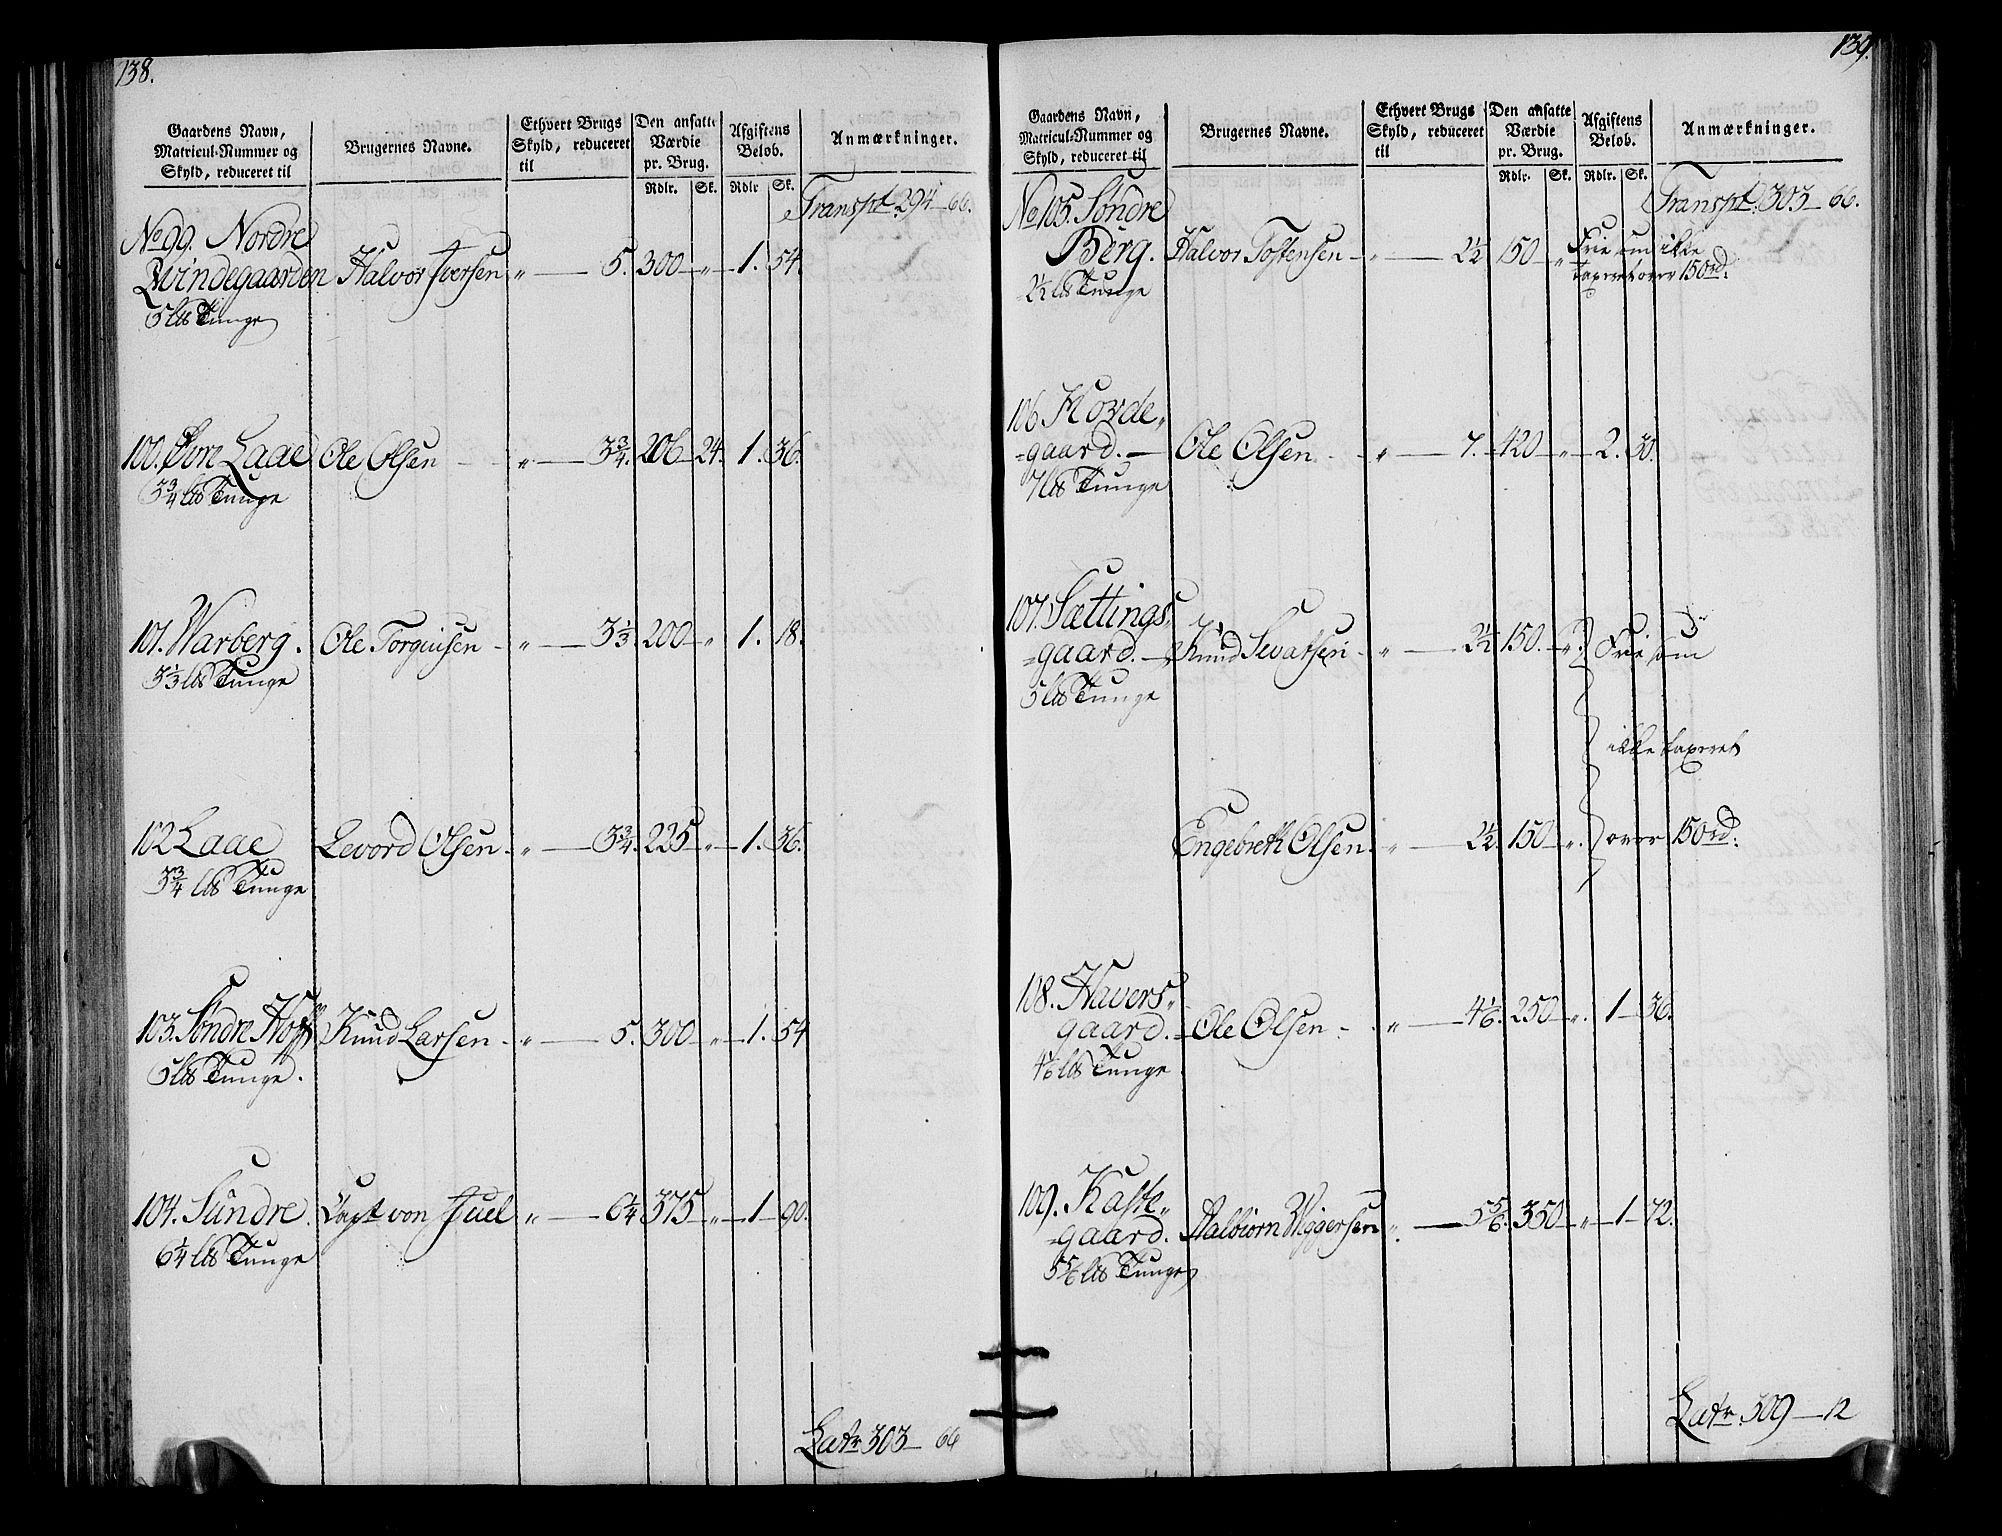 138.
Gaardens Navn, Matricul-Nummer og Skyld, reduceret til
Brugernes Navne.
Ethvert Brugs Skyld, reduceret til
Den ansatte Værdie pr. Brug.
Afgiftens Beløb.
Anmærkninger.
Rdlr. Sk. Rdlr Sk.
Transpt. 294 — 66.
No 99. Nordre
Qvindegaarden Halvor Iversen " — 5. 300 — " — 1. 54.
5 lb Tunge
100. Øvre Laae Ole Olsen " — 3 3/4. 206 — 24. 1. 36.
3 3/4 lb Tunge
101. Warberg. Ole Torguisen - " — 3 1/3. 200 — " 1. 18.
3 1/3 lb Tunge
102 Laae Levord Olsen. " — 3 3/4. 225 — " — 1. 36.
3 3/4 lb Tunge
103. Søndre Hoff Knud Larsen - " — 5. 300 — " — 1. 54
5 lb Tunge.
104. Sundre. Capt von Juel " — 6 1/4 375 — " — 1 — 90.
6 1/4 lb Tunge
Latr. 303 — 66
139.
Gaardens Navn, Matricul-Nummer og Skyld, reduceret til
Brugernes Navne.
Ethvert Brugs Skyld, reduceret til
Den ansatte Værdie pr. Brug.
Afgiftens Beløb.
Anmærkninger.
Rdlr. Sk. Rdlr. Sk.
Transpt. 303 — 66.
No 105. Søndre
Berg. Halvor Tostensen - " — 2 1/2 150 — " Frie som ikke
2 1/2 lb Tunge taxeret over 150 rd.
106 Hovde"
=gaard. — Ole Olsen - " — 7. 420 — " — 2. 30.
7 lb Tunge
107. Sættings"
=gaard. — Knud Sevatsen - " — 2 1/2 150. — " Frie som
5 lb Tunge
ikke taxeret
Engebreth Olsen. " — 2 1/2. 150 — ". over 150 rd.
108. Havers"
gaard. — Ole Olsen - " — 4 1/6. 250 — ". 1 — 36.
4 1/6 lb Tunge
109. Kaste"
=gaard. Halbiorn Wiggersen " — 5 5/6. 350 — " — 1 — 72.
5 5/6 lb Tunge
Latr. 309 — 12